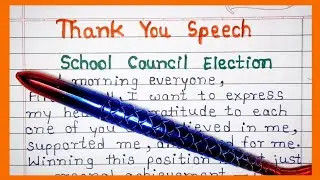 Thank You Speech
School Council Election
morning everyone,
I want to express
my gratitude to each
one of you believed in me,
supported me, for me.
Winning this position just